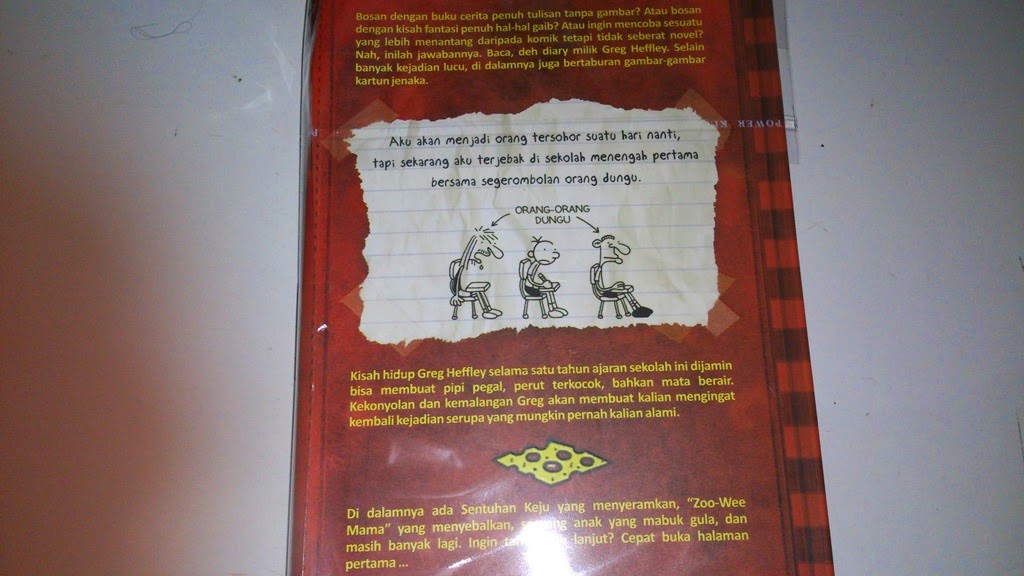 Bosan dengan buku cerita penuh tulisan tanpa gambar? Atau bosan
dengan kisah fantasi penuh hal-hal gaib? Atau ingin mencoba sesuatu
yang lebih menantang daripada komik tetapi tidak seberat novel?
Nah, inilah jawabannya. Baca, deh diary milik Greg Heffley. Selain
banyak kejadian lucu, di dalamnya juga bertaburan gambar-gambar
kartun jenaka.
POWER
Aku akan menjadi orang tersohor suatu hari nanti,
tapi sekarang aku terjebak di sekolah menengah pertama
bersama segerombolan orang dungu.
ORANG-ORANG
DUNGU
Kisah hidup Greg Heffley selama satu tahun ajaran sekolah ini dijamin
bisa membuat pipi pegal, perut terkocok, bahkan mata berair.
Kekonyolan dan kemalangan Greg akan membuat kalian mengingat
kembali kejadian serupa yang mungkin pernah kalian alami.
Di dalamnya ada Sentuhan Keju yang menyeramkan, “Zoo-Wee
Mama” yang menyebalkan, anak yang mabuk gula, dan
masih banyak lagi. Ingin lanjut? Cepat buka halaman
pertama ...